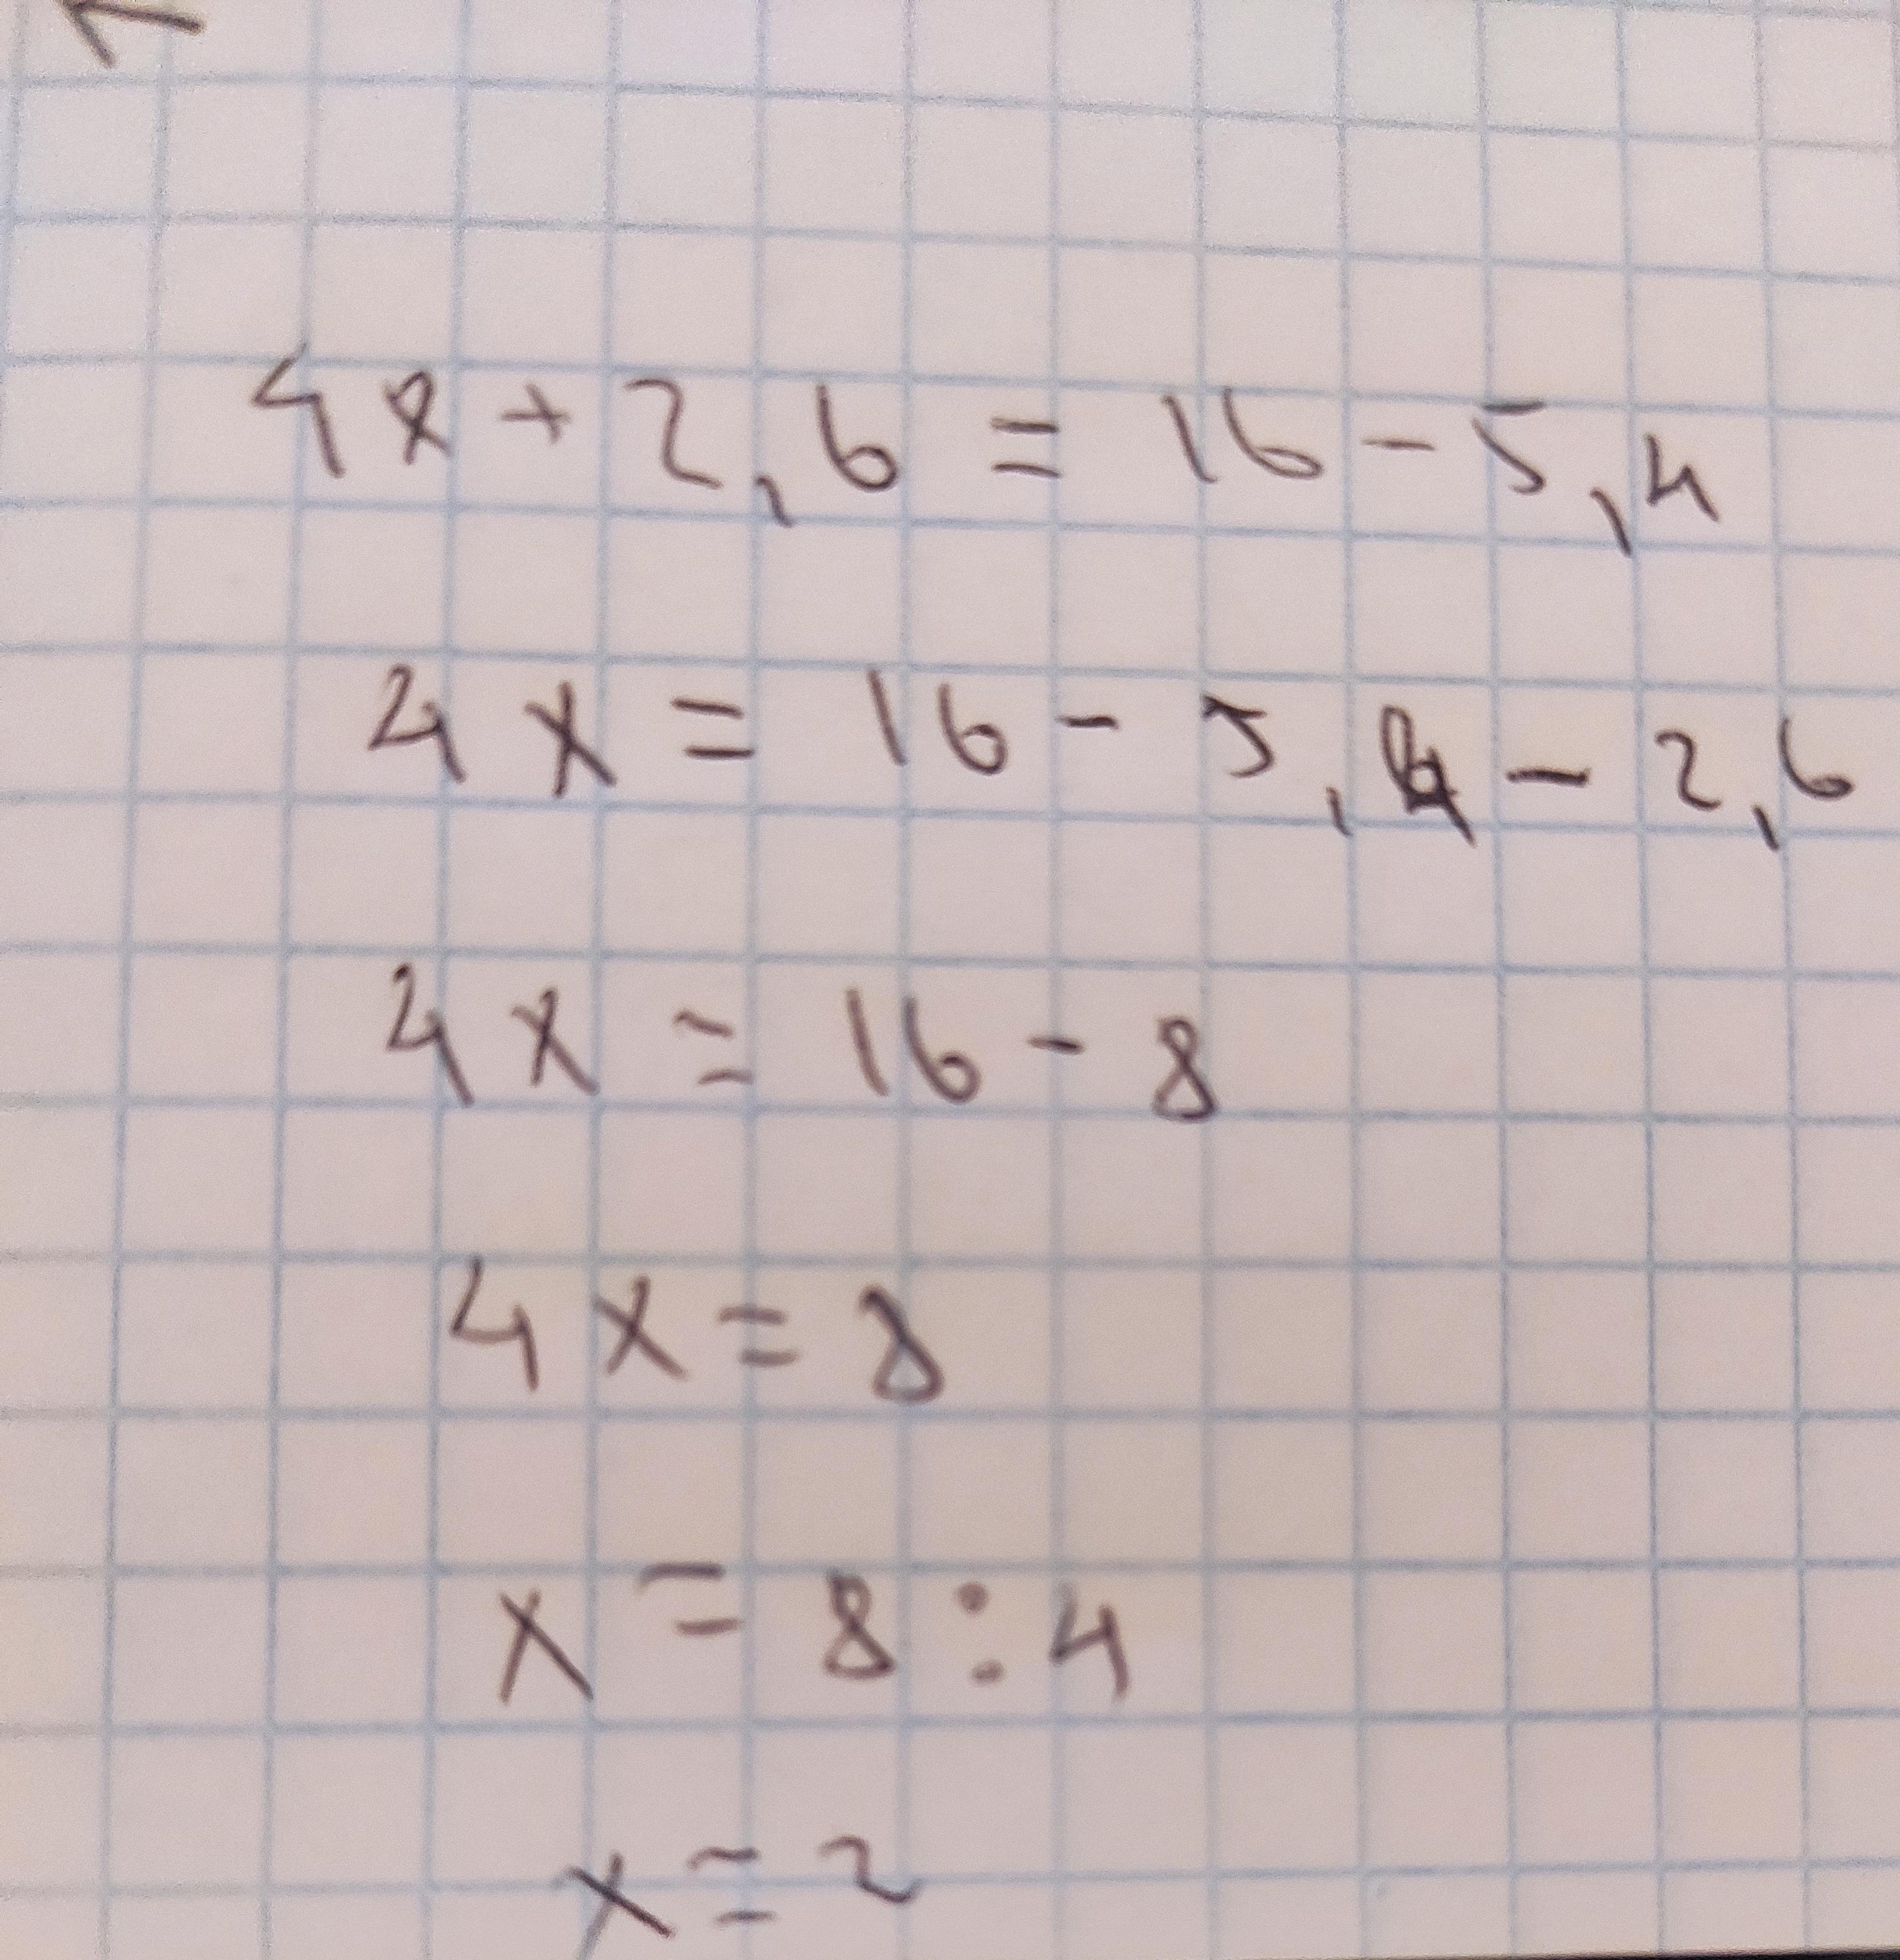 4x + 2,6 = 16 - 5,4
4x = 16 - 5,4 - 2,6
4x = 16 - 8
4x = 8
x = 8 : 4
x = 2